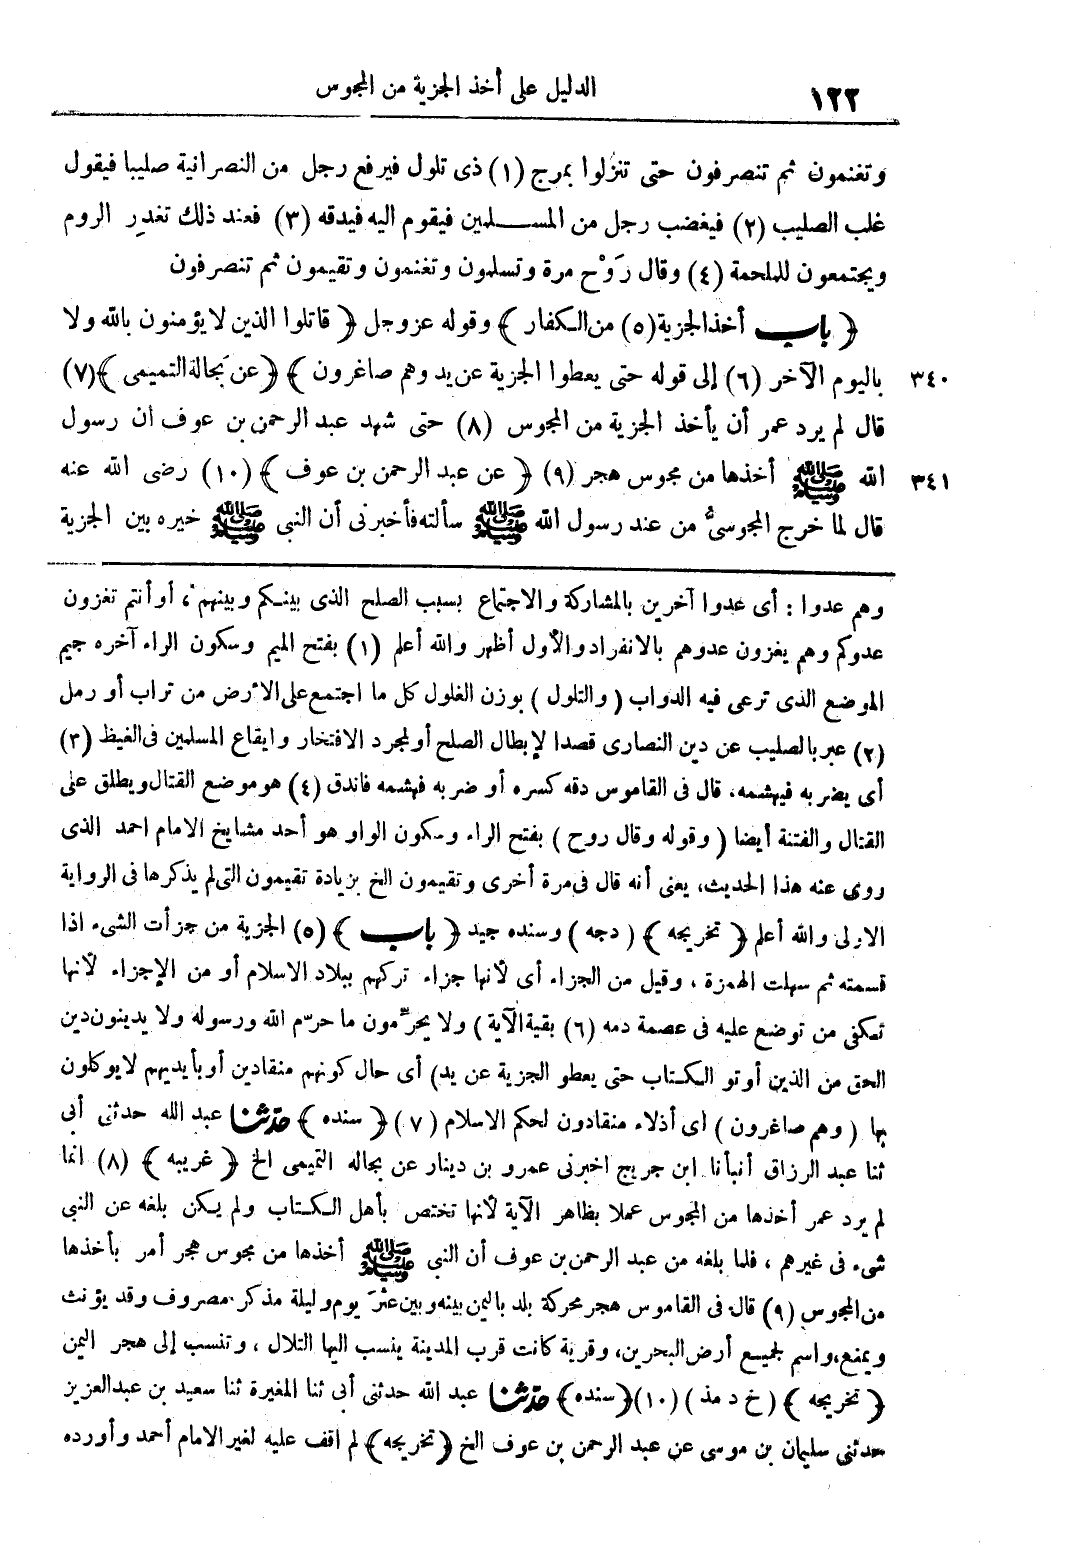 ١٢٢ الدليل على أخذ الجزية من المجوس
وتغنمون ثم تنصرفون حتى تنزلوا بمرج (١) ذى تلول فيرفع رجل من النصرانية صليبا فيقول
غلب الصليب (٢) فيغضب رجل من المسلمين فيقوم اليه فيدقه (٣) فعند ذلك تغدر الروم
ويجتمعون للملحمة (٤) وقال رَوْح مرة وتسلمون وتغنمون وتقيمون ثم تنصرفون
﴿ باب أخذ الجزية (٥) من الكفار ﴾ وقوله عز وجل ﴿ قاتلوا الذين لا يؤمنون بالله ولا
٣٤٠ باليوم الآخر (٦) إلى قوله حتى يعطوا الجزية عن يد وهم صاغرون ﴾ ﴿ عن بَجالة التميمى ﴾ (٧)
قال لم يرد عمر أن يأخذ الجزية من المجوس (٨) حتى شهد عبد الرحمن بن عوف ان رسول
٣٤١ الله ﷺ أخذها من مجوس هجر (٩) ﴿ عن عبد الرحمن بن عوف ﴾ (١٠) رضى الله عنه
قال لما خرج المجوسىُّ من عند رسول الله ﷺ سألته فأخبرنى أن النبى ﷺ خيره بين الجزية
وهم عدوا : أى عدوا آخرين بالمشاركة والاجتماع بسبب الصلح الذى بينكم وبينهم ، أو أنتم تغزون
عدوكم وهم يغزون عدوهم بالانفراد والأول أظهر والله أعلم (١) بفتح الميم وسكون الراء آخره جيم
الموضع الذى ترعى فيه الدواب ( والتلول ) بوزن الفلول كل ما اجتمع على الأرض من تراب أو رمل
(٢) عبر بالصليب عن دين النصارى قصدا لإبطال الصلح أو لمجرد الافتخار وايقاع المسلمين فى الغيظ (٣)
أى يضربه فيهشمه، قال فى القاموس دقه كسره أو ضربه فهشمه فاندق (٤) هو موضع القتال ويطلق على
القتال والفتنة أيضا ( وقوله وقال روح ) بفتح الراء وسكون الواو هو أحد مشايخ الامام احمد الذى
روى عنه هذا الحديث، يعنى أنه قال فى مرة أخرى وتقيمون الخ بزيادة تقيمون التى لم يذكرها فى الرواية
الاولى والله أعلم ﴿ تخريجه ﴾ ( د جه ) وسنده جيد ﴿ باب ﴾ (٥) الجزية من جزأت الشىء اذا
قسمته ثم سهلت الهمزة ، وقيل من الجزاء أى لأنها جزاء تركهم ببلاد الاسلام أو من الإجزاء لأنها
تكفى من توضع عليه فى عصمة دمه (٦) بقية الآية ) ولا يحرّمون ما حرّم الله ورسوله ولا يدينون دين
الحق من الذين أوتو الكتاب حتى يعطو الجزية عن يد) أى حال كونهم منقادين أو بأيديهم لا يوكلون
بها ( وهم صاغرون ) اى أذلاء منقادون لحكم الاسلام (٧) ﴿ سنده ﴾ حدّثنا عبد الله حدثنى أبى
ثنا عبد الرزاق أنبأنا ابن جريج اخبرنى عمرو بن دينار عن بجاله التميمى الخ ﴿ غريبه ﴾ (٨) انما
لم يرد عمر أخذها من المجوس عملا بظاهر الآية لأنها تختص بأهل الكتاب ولم يكن بلغه عن النبى
شىء فى غيرهم ، فلما بلغه من عبد الرحمن بن عوف أن النبى ﷺ أخذها من مجوس هجر أمر بأخذها
من المجوس (٩) قال فى القاموس هجر محركة بلد باليمن بينه وبين عثّر يوم وليلة مذكر مصروف وقد يؤنث
ويمنع، واسم لجميع أرض البحرين، وقرية كانت قرب المدينة ينسب اليها القلال ، وتنسب إلى هجر اليمن
﴿ تخريجه ﴾ ( خ د مذ ) (١٠) ﴿ سنده ﴾ حدّثنا عبد الله حدثنى أبى ثنا المغيرة ثنا سعيد بن عبد العزيز
حدثنى سليمان بن موسى عن عبد الرحمن بن عوف الخ ﴿ تخريجه ﴾ لم اقف عليه لغير الامام أحمد وأورده